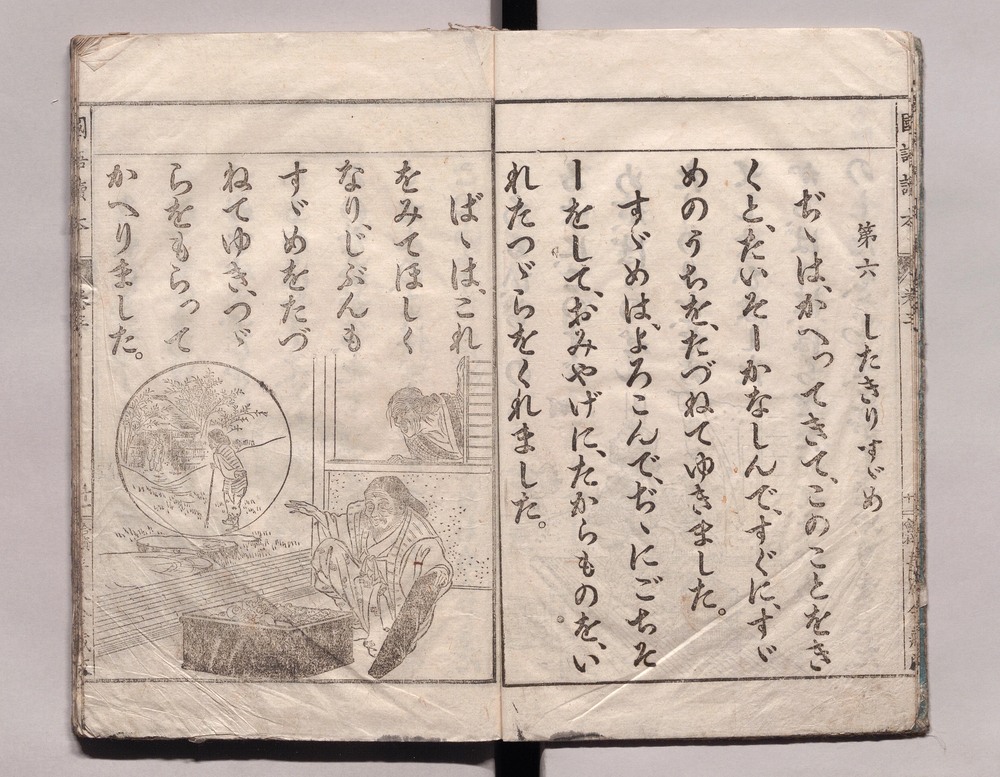 國語讀本
第六　したきりすゞめ
ぢゝは、かへってきて、このことをき
くと、たいそーかなしんで、すぐに、すゞ
めのうちを、たづねてゆきました。
すゞめは、よろこんで、ぢゝにごちそ
ーをして、おみやげに、たからものを、い
れたつゞらをくれました。
ばゝは、これ
をみてほしく
なり、じぶんも
すゞめをたづ
ねてゆき、つゞ
らをもらって
かへりました。
國語讀本